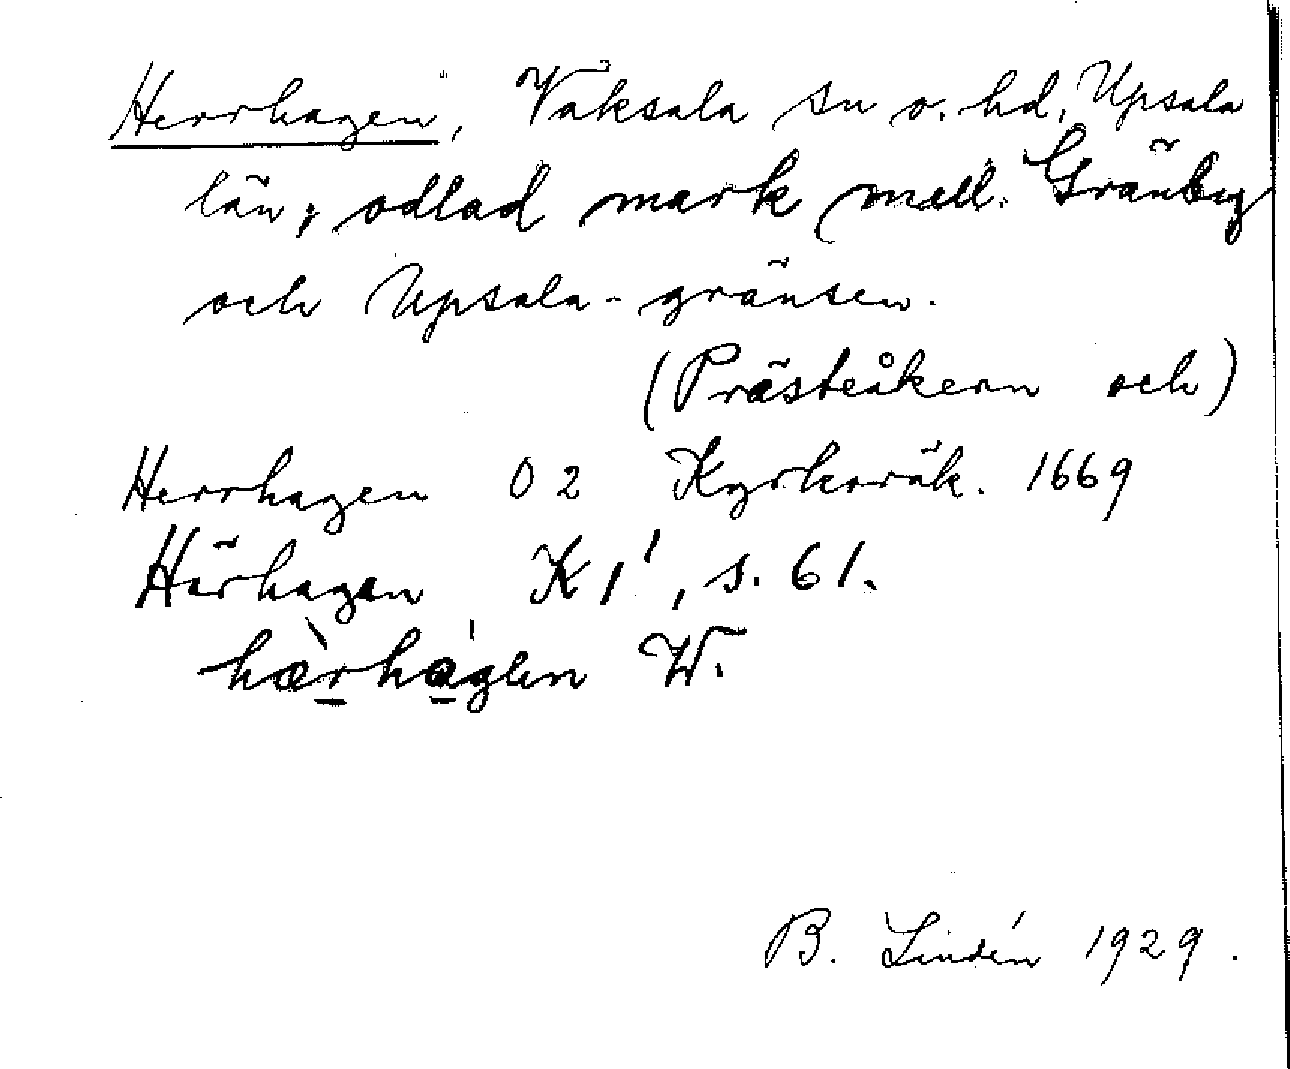 Herrhagen, Vaksala sn o. hd, Upsala
län, odlad mark mell. Gränby
och Upsala-gränsen.
(Prästeåkern och)
Herrhagen 02 Kyrkoräk. 1669
Härhagen K1', s. 61.
hæ̀rhágen W.
B. Lindén 1929.